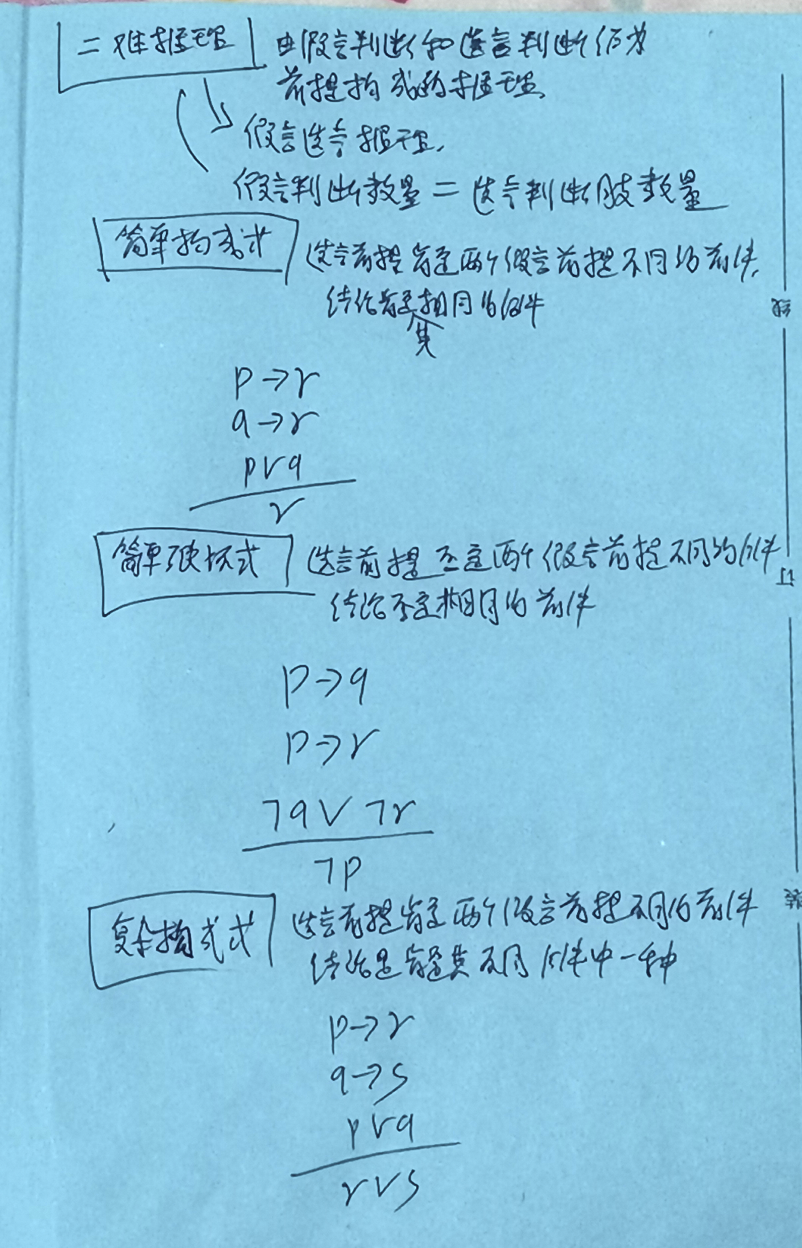 二难推理 由假言判断和选言判断作为
前提构成的推理。
假言选言推理。
假言判断数量=选言判断肢数量
简单构成式 选言前提肯定两个假言前提不同的前件,
结论肯定其相同的后件
p→r
q→r
p∨q
r
简单破坏式 选言前提否定两个假言前提不同的后件
结论否定相同的前件
p→q
p→r
¬q∨¬r
¬p
复杂构成式 选言前提肯定两个假言前提不同的前件
结论是肯定其不同后件中一种
p→r
q→s
p∨q
r∨s
线
订
装